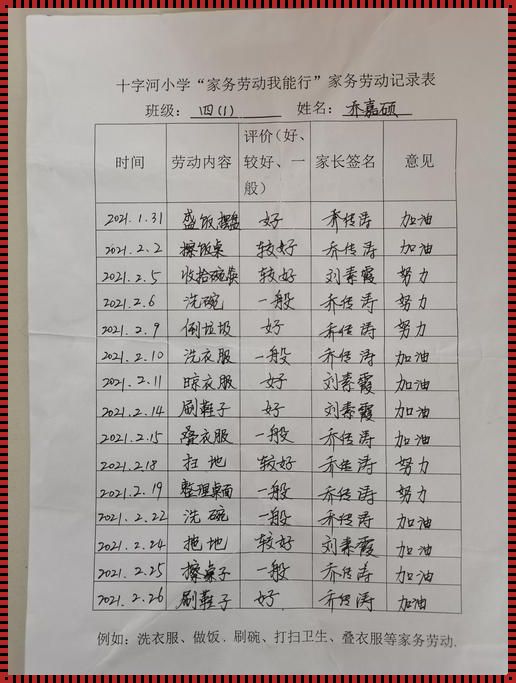 十字河小学“家务劳动我能行”家务劳动记录表
班级：四(1) 姓名：乔嘉硕
时间 劳动内容 评价（好、较好、一般） 家长签名 意见
2021.1.31 盛饭,摆盘 好 乔传涛 加油
2021.2.2 擦饭桌 较好 乔传涛 加油
2021.2.5 收拾碗筷 较好 刘素霞 努力
2021.2.6 洗碗 一般 乔传涛 努力
2021.2.9 倒垃圾 好 乔传涛 努力
2021.2.10 洗衣服 一般 乔传涛 加油
2021.2.11 晾衣服 好 刘素霞 加油
2021.2.14 刷鞋子 好 刘素霞 加油
2021.2.15 叠衣服 一般 乔传涛 加油
2021.2.18 扫地 较好 乔传涛 努力
2021.2.19 整理桌面 一般 乔传涛 努力
2021.2.22 洗碗 一般 乔传涛 加油
2021.2.24 拖地 较好 刘素霞 加油
2021.2.25 擦桌子 一般 乔传涛 加油
2021.2.26 刷鞋子 好 乔传涛 加油
例如：洗衣服、做饭．刷碗、打扫卫生、叠衣服等家务劳动.